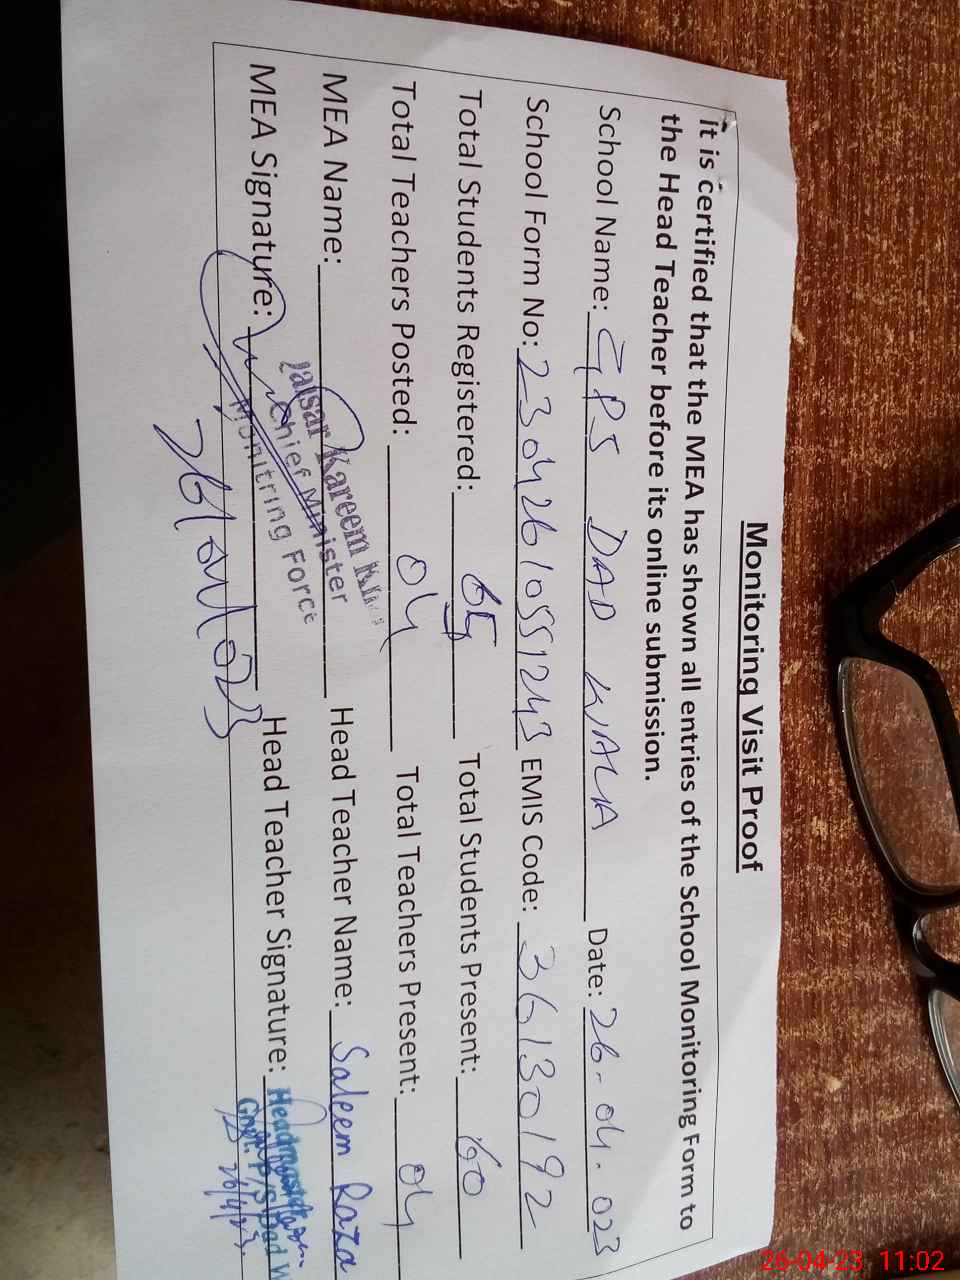 Monitoring Visit Proof
it is certified that the MEA has shown all entries of the School Monitoring Form to
the Head Teacher before its online submission.
School Name: GPS DAD WALA Date: 26-04-023
School Form No: 23042610551243 EMIS Code: 36130192
Total Students Registered: 65 Total Students Present: 60
Total Teachers Posted: 04 Total Teachers Present: 04
MEA Name: Kareem Head Teacher Name: Saleem Raza
Chief Minister
Monitring Force
MEA Signature: Head Teacher Signature: Headmaster
Govt. P/S Dad W
26/04/023 26/4/23
26-04-23 11:02